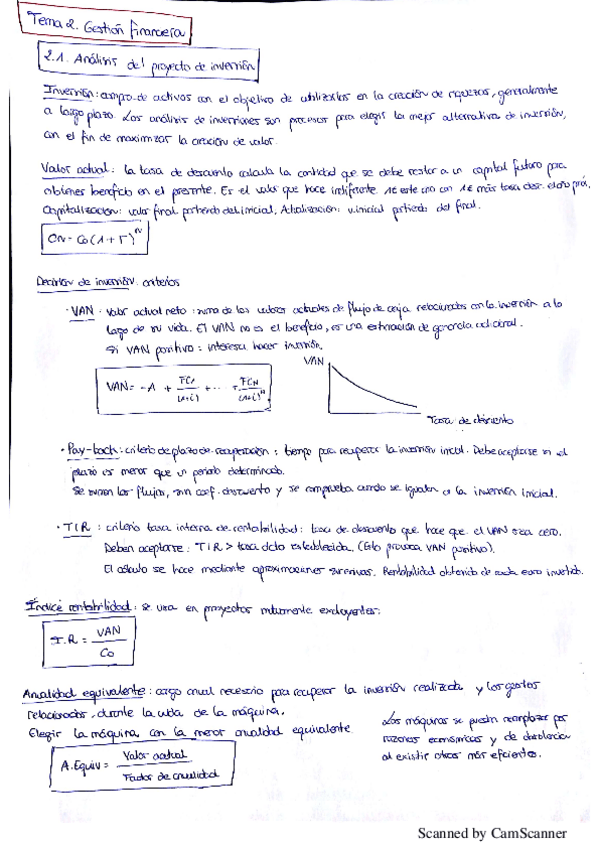 Tema 2. Gestión financiera
2.1. Análisis del proyecto de inversión
Inversión: compra de activos con el objetivo de utilizarlos en la creación de riquezas, generalmente
a largo plazo. Los análisis de inversiones son procesos para elegir la mejor alternativa de inversión,
con el fin de maximizar la creación de valor.
Valor actual: la tasa de descuento calcula la cantidad que se debe restar a un capital futuro para
obtener beneficio en el presente. Es el valor que hace indiferente 1€ este año con 1€ más tasa desc. el año próx.
Capitalización: valor final partiendo del inicial, Actualización: v.inicial partiendo del final.
Cn = Co(1+r)^n
Decisión de inversión: criterios
· VAN: valor actual neto: suma de los valores actuales de flujo de caja relacionados con la inversión a lo
largo de su vida. El VAN no es el beneficio, es una estimación de ganancia adicional.
Si VAN positivo: interesa hacer inversión.
VAN = -A + FC1/(1+i) + ... + FCN/(1+i)^n
VAN
Tasa de descuento
· Pay-back: criterio de plazo de recuperación: tiempo para recuperar la inversión inicial. Debe aceptarse si el
plazo es menor que un periodo determinado.
Se suman los flujos, sin coef. descuento y se comprueba cuando se igualan a la inversión inicial.
· TIR: criterio tasa interna de rentabilidad: tasa de descuento que hace que el VAN sea cero.
Deben aceptarse: TIR > tasa dcto establecida. (Esto provoca VAN positivo).
El cálculo se hace mediante aproximaciones sucesivas. Rentabilidad obtenida de cada euro invertido.
Índice rentabilidad: se usa en proyectos mutuamente excluyentes:
I.R = VAN/Co
Anualidad equivalente: cargo anual necesario para recuperar la inversión realizada y los gastos
relacionados, durante la vida de la máquina.
Elegir la máquina con la menor anualidad equivalente.
A.Equiv = Valor actual/Factor de anualidad
Las máquinas se pueden reemplazar por
razones económicas y de
al existir otras más eficientes.
Scanned by CamScanner